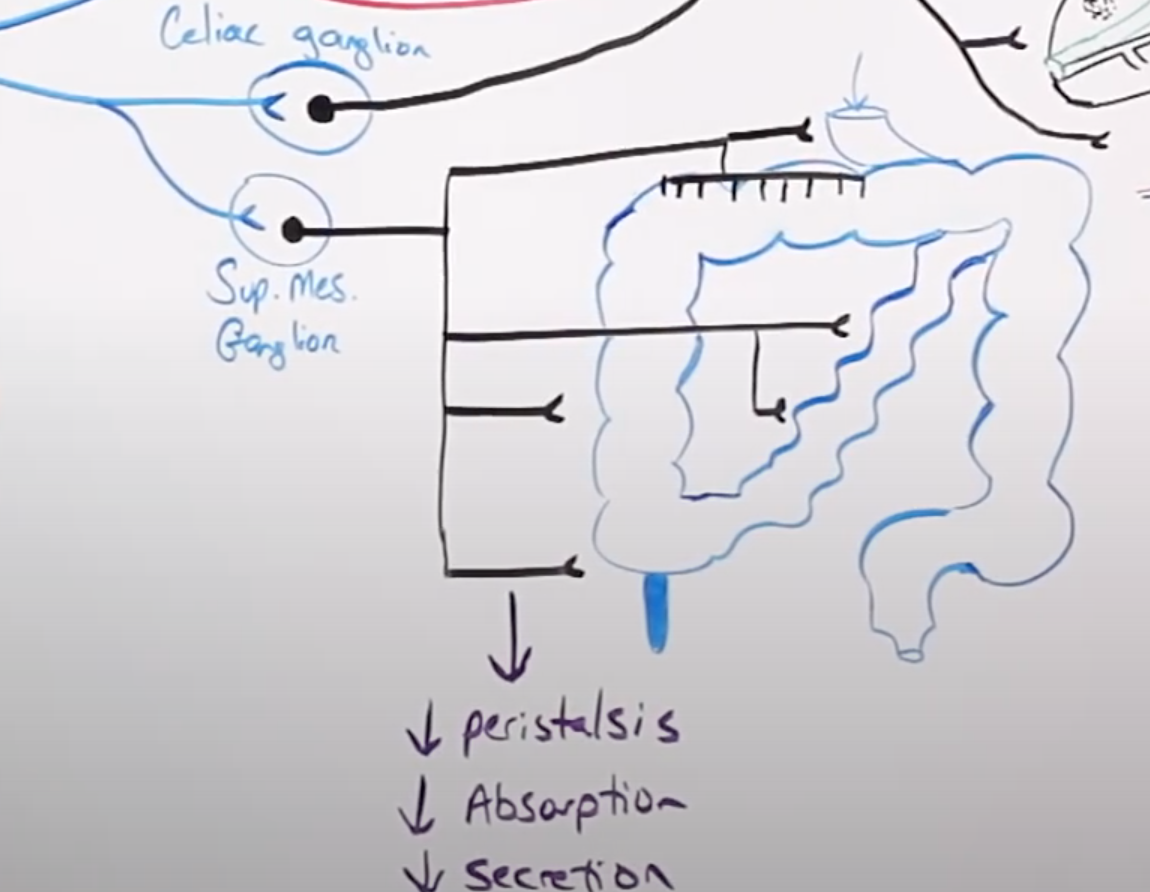 Celiac ganglion
Sup. Mes.
Ganglion
↓ peristalsis
↓ Absorption
↓ secretion